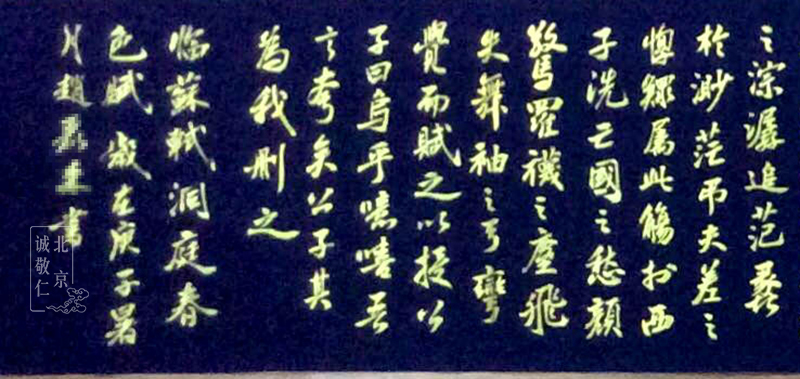 之淙潺追范蠡
於渺茫吊夫差之
惸鰥属此觴於西
子洗亡國之愁顏
驚羅襪之塵飛
失舞袖之弓彎
覺而賦之以授公
子曰烏乎噫嘻吾
言夸矣公子其
為我刪之
临蘇軾洞庭春
色賦 歲在庚子暑
月趙書
北京
诚敬仁